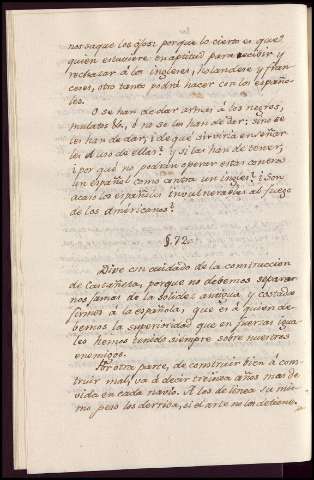 nos saque los ojos: porque lo cierto es que
quien estuviere en aptitud para recibir y
rechazar á los ingleses, holandeses y fran-
ceses, otro tanto podrá hacer con los españo-
les.
O se han de dar armas á los negros,
mulatos &., ó no se les han de dar; sino se
les han de dar, ¿de qué serviria enseñar
les el uso de ellas? Y si las han de tener,
¿por qué no podrán operar estas contra
un español como contra un ingles? ¿Son
acaso los españoles invulnerables al fuego
de los américanos?
§. 72.
Dixe con cuidado de la construccion
de Castañeta, porque no debemos separar
nos jamas de la solidez antigua y costados
firmes á la española, que es á quien de-
bemos la superioridad que en fuerzas igua-
les hemos tenido siempre sobre nuestros
enemigos.
Por otra parte, de construir bien á cons-
truir mal, va á decir treinta años mas de
vida en cada navío. A los de linea su mis-
mo peso los derriba, si el arte no los detiene.